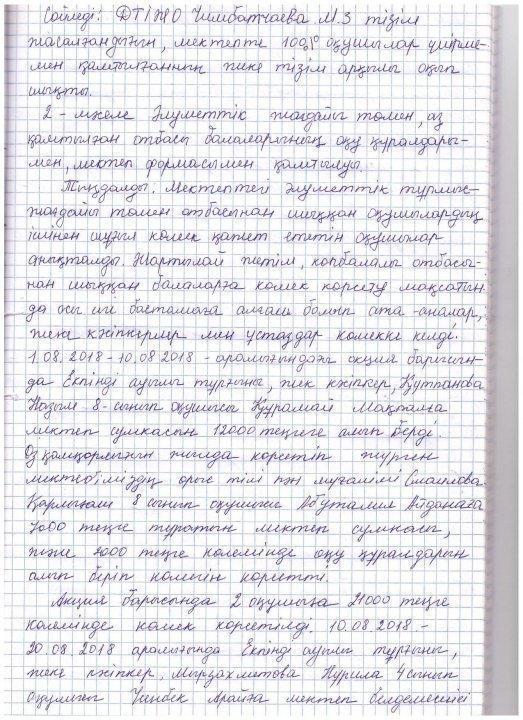 Сөйледі: ДТІЖО Чимбатчаева М.З тізім
жасалғандығын, мектепте 100% оқушылар үйірме-
мен қамтылғанның жеке тізім арқылы оқып
шықты.
2 - мәселе Әлуметтік жағдайы төмен, аз
қамтылған отбасы балаларының оқу құралдары-
мен, мектеп формасымен қамтылуы.
Тыңдалды: Мектептегі әлуметтік тұрмыс-
жағдайы төмен отбасынан шыққан оқушылардың
ішінен шұғыл көмек қажет ететін оқушылар
анықталды. Жартылай жетім, көпбалалы отбасы-
нан шыққан балаларға көмек көрсету мақсатын-
да осы игі бастамаға алғаш болып ата-аналар,
жеке кәсіпкерлер мен ұстаздар көмекке келді.
1.08.2018 - 10.08.2018 - аралығындағы акция барысын-
да Екпінді ауылы тұрғыны, жек кәсіпкер, Құттанова
Назым 8-сынып оқушысы Құрамай Мақпалға
мектеп сумкасын 12000 теңгеге алып берді.
Өз қамқорлығын жылда көрсетіп жүрген
мектебіміздің орыс тілі пән мұғалімі Смаилова
Қарлығаш 8 сынып оқушысы Абуталип Айданаға
7000 теңге тұратын мектеп сумкасы,
және 2000 теңге көлемінде оқу құралдарын
алып беріп көмегін көрсетті.
Акция барысында 2 оқушыға 21000 теңге
көлемінде көмек көрсетілді. 10.08.2018 -
20.08.2018 аралығында Екпінді ауылы тұрғыны,
жеке кәсіпкер, Мырзахметова Нурила 4 сынып
оқушысы Арайға мектеп